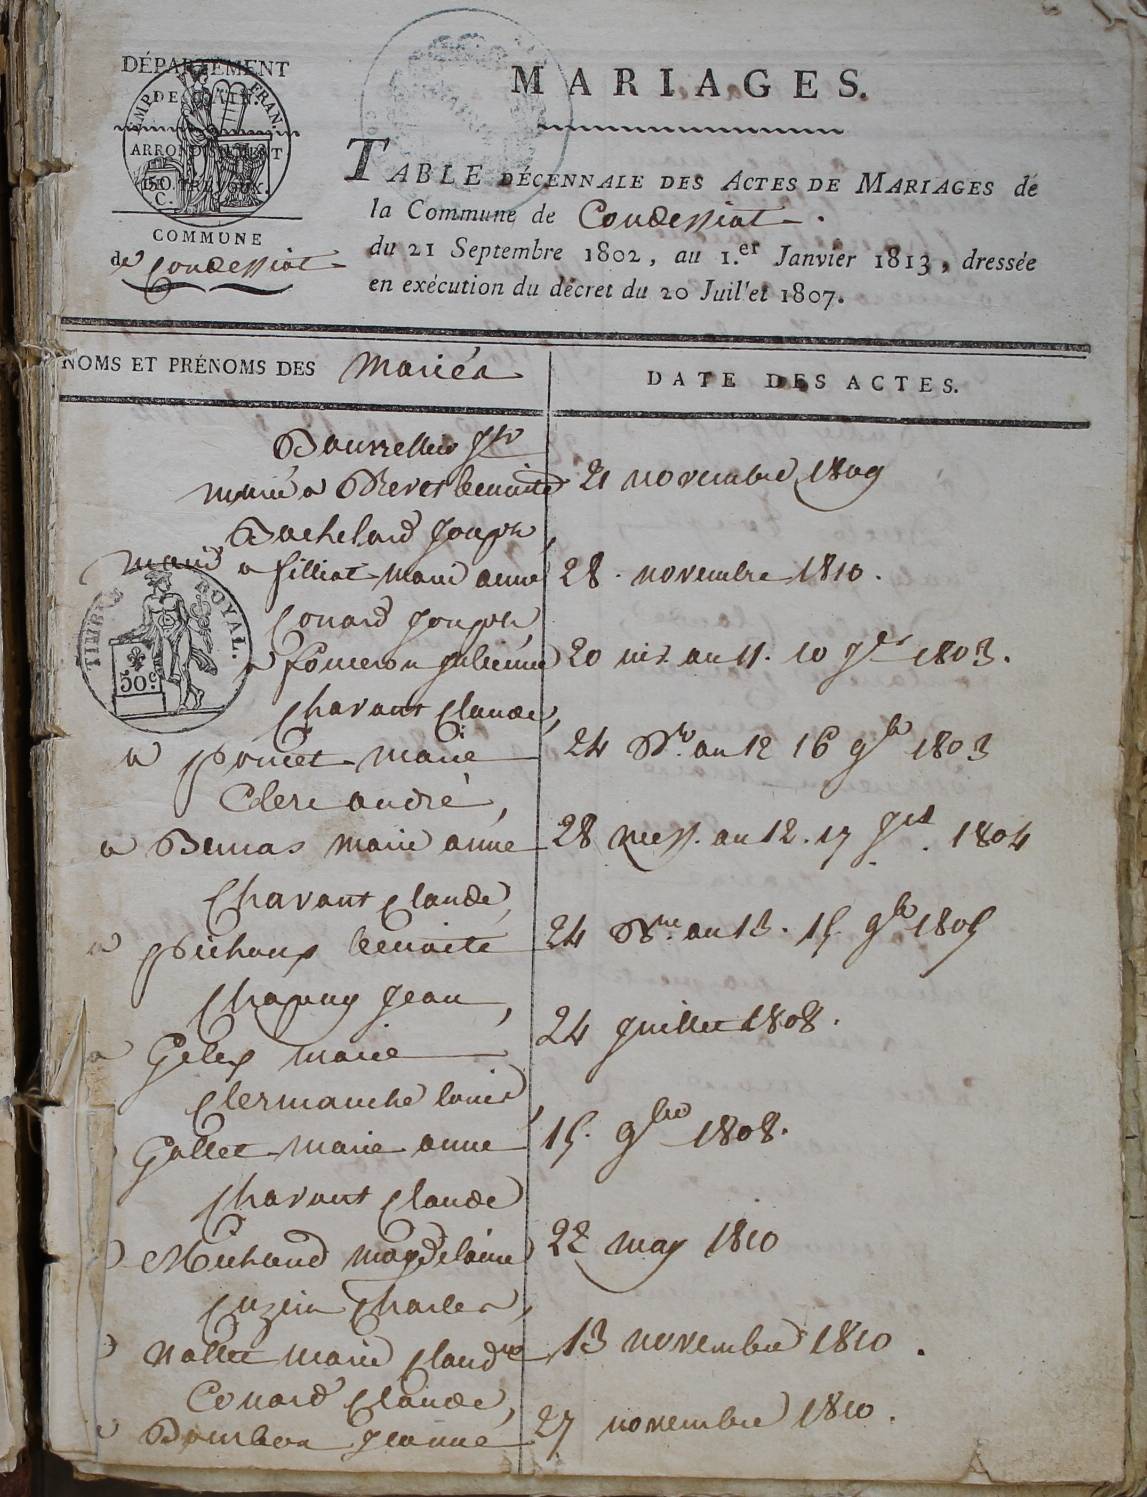 DÉPARTEMENT
DE L'AIN.
ARRONDISSEMENT
DE TRÉVOUX.
EMPIRE FRAN.
50
C.
COMMUNE
de Condessiat
MARIAGES.
TABLE DÉCENNALE DES ACTES DE MARIAGES de
la Commune de Condessiat.
du 21 Septembre 1802, au 1.er Janvier 1813, dressée
en exécution du décret du 20 Juil'et 1807.
NOMS ET PRÉNOMS DES Mariés
DATE DES ACTES.
marié a benoite
21 novembre 1809
Bachelard Joseph,
marié a filliat marie anne
28. novembre 1810.
TIMBRE ROYAL.
50c
Conard Joseph,
a julienne
20 niv. an 11. 10 1803.
Chavant Claude,
a poncet marie
24 an 12 16 1803
Clerc andré,
a marie anne
28 mess. an 12. 17 1804
Chavant Claude,
a benoite
24 an 13. 15. 1805
Chapuy Jean,
a marie
24 juillet 1808.
Clermanche louis,
Gallet marie anne
15. 9bre 1808.
Chavant Claude
Michaud magdelaine
22 may 1810
Cuzin Charles,
Nallet marie
13 novembre 1810.
Conard Claude,
a Bourbon jeanne
27 novembre 1810.